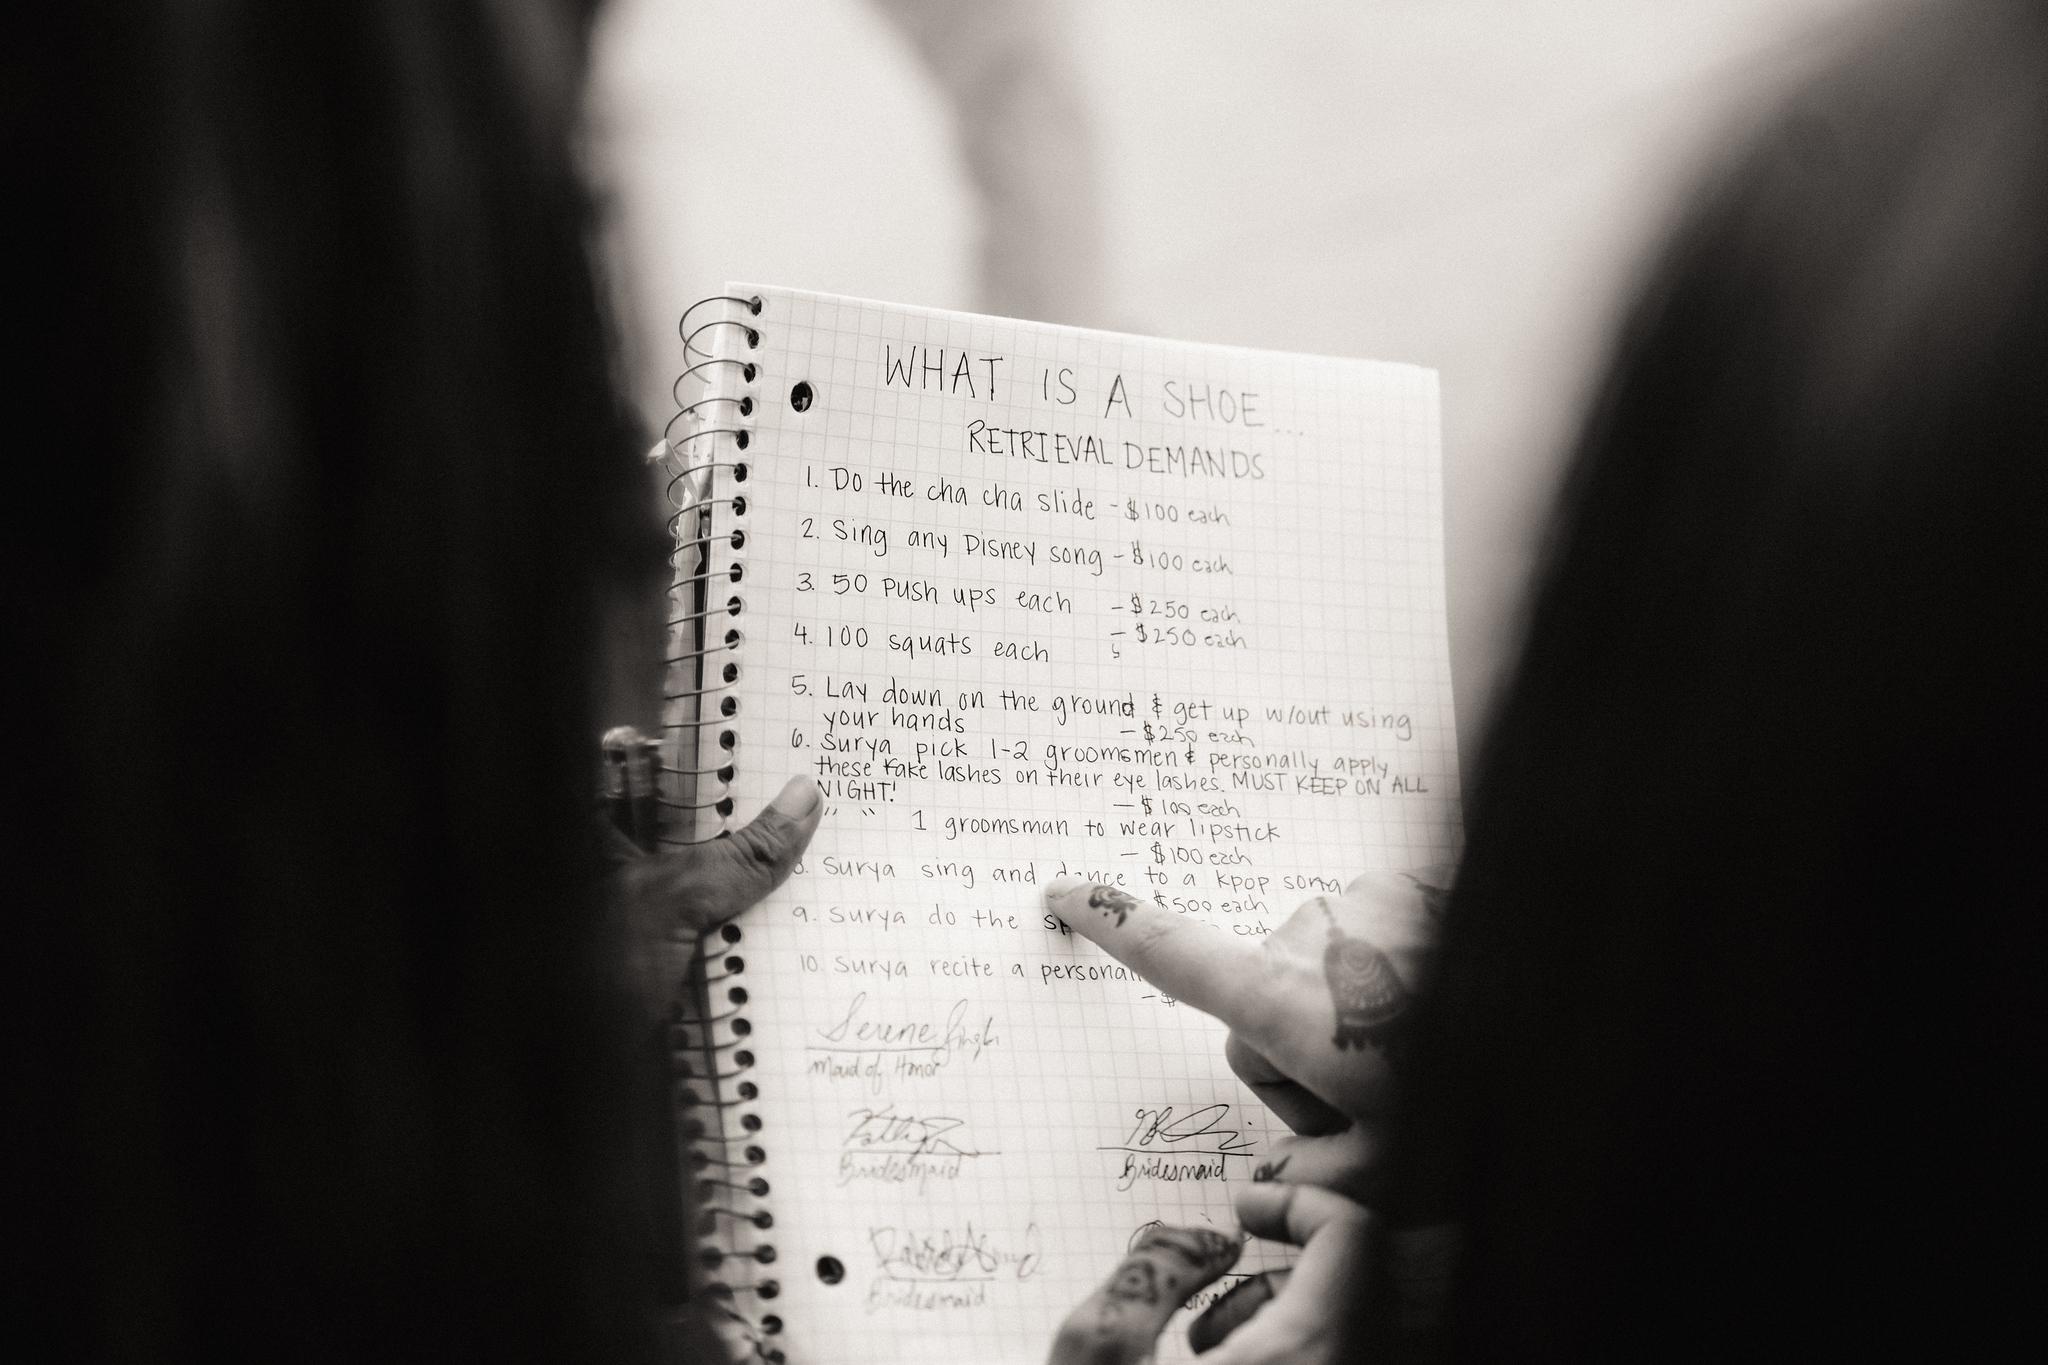 WHAT IS A SHOE...
RETRIEVAL DEMANDS
1. Do the cha cha slide - $100 each
2. Sing any Disney song - $100 each
3. 50 push ups each - $250 each
4. 100 squats each - $250 each
5. Lay down on the ground & get up w/out using
your hands
- $250 each
6. Surya pick 1-2 groomsmen & personally apply
these fake lashes on their eye lashes. MUST KEEP ON ALL
NIGHT!
- $100 each
" " 1 groomsman to wear lipstick
- $100 each
8. Surya sing and dance to a kpop song
- $500 each
9. Surya do the each
10. Surya recite a
- $
Serene Singh
Maid of Honor
Bridesmaid
Bridesmaid
Bridesmaid